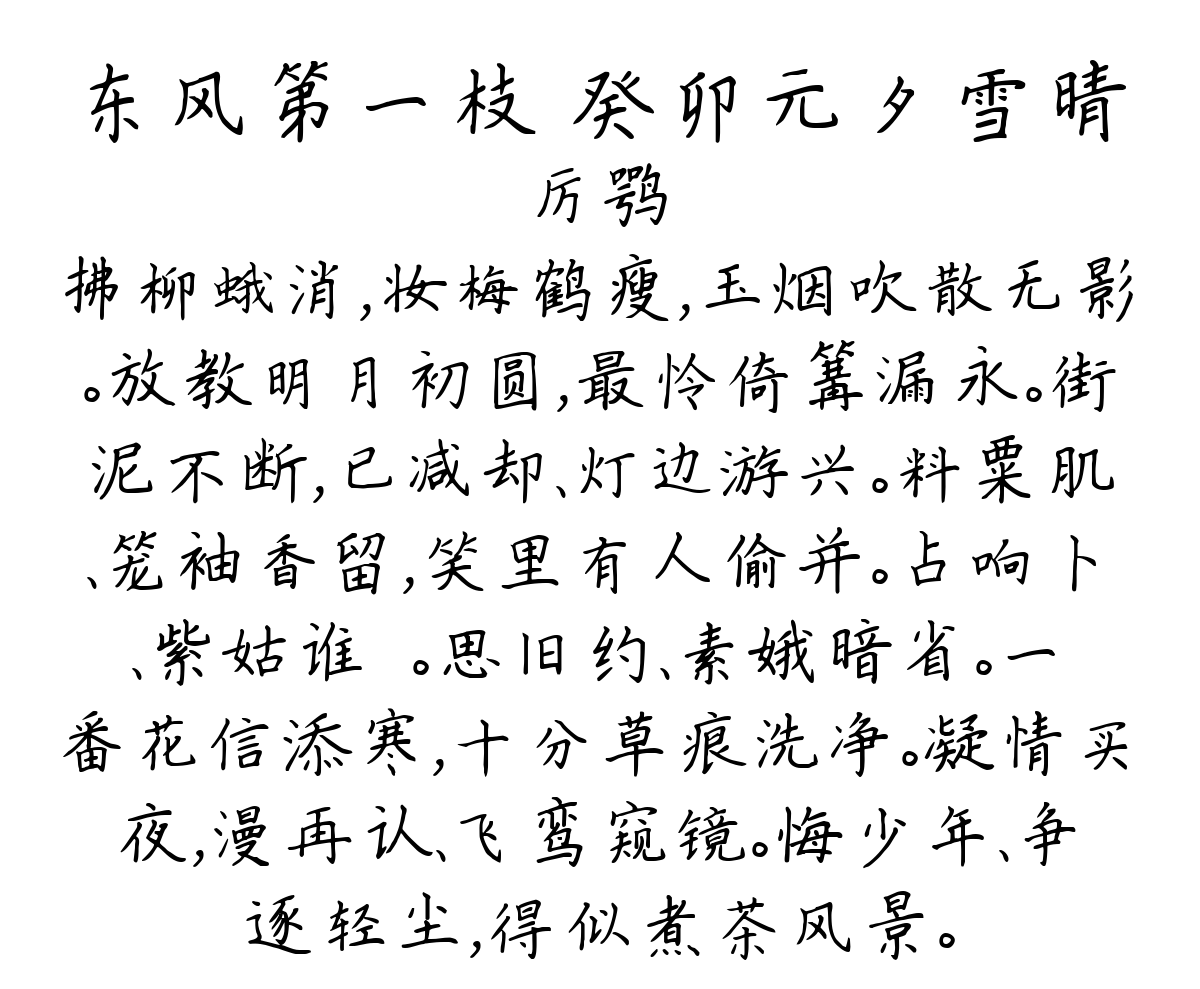 东风第一枝 癸卯元夕雪晴
厉鹗
拂柳蛾消,妆梅鹤瘦,玉烟吹散无影
。放教明月初圆,最怜倚篝漏永。街
泥不断,已减却、灯边游兴。料粟肌
、笼袖香留,笑里有人偷并。占响卜
、紫姑谁 。思旧约、素娥暗省。一
番花信添寒,十分草痕洗净。凝情买
夜,漫再认、飞鸾窥镜。悔少年、争
逐轻尘,得似煮茶风景。